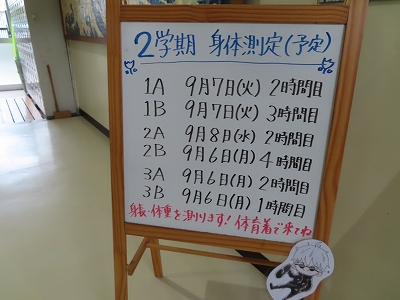 2学期 身体測定(予定)
1A 9月7日(火) 2時間目
1B 9月7日(火) 3時間目
2A 9月8日(水) 2時間目
2B 9月6日(月) 4時間目
3A 9月6日(月) 2時間目
3B 9月6日(月) 1時間目
身長・体重を測ります! 体育着で来てね